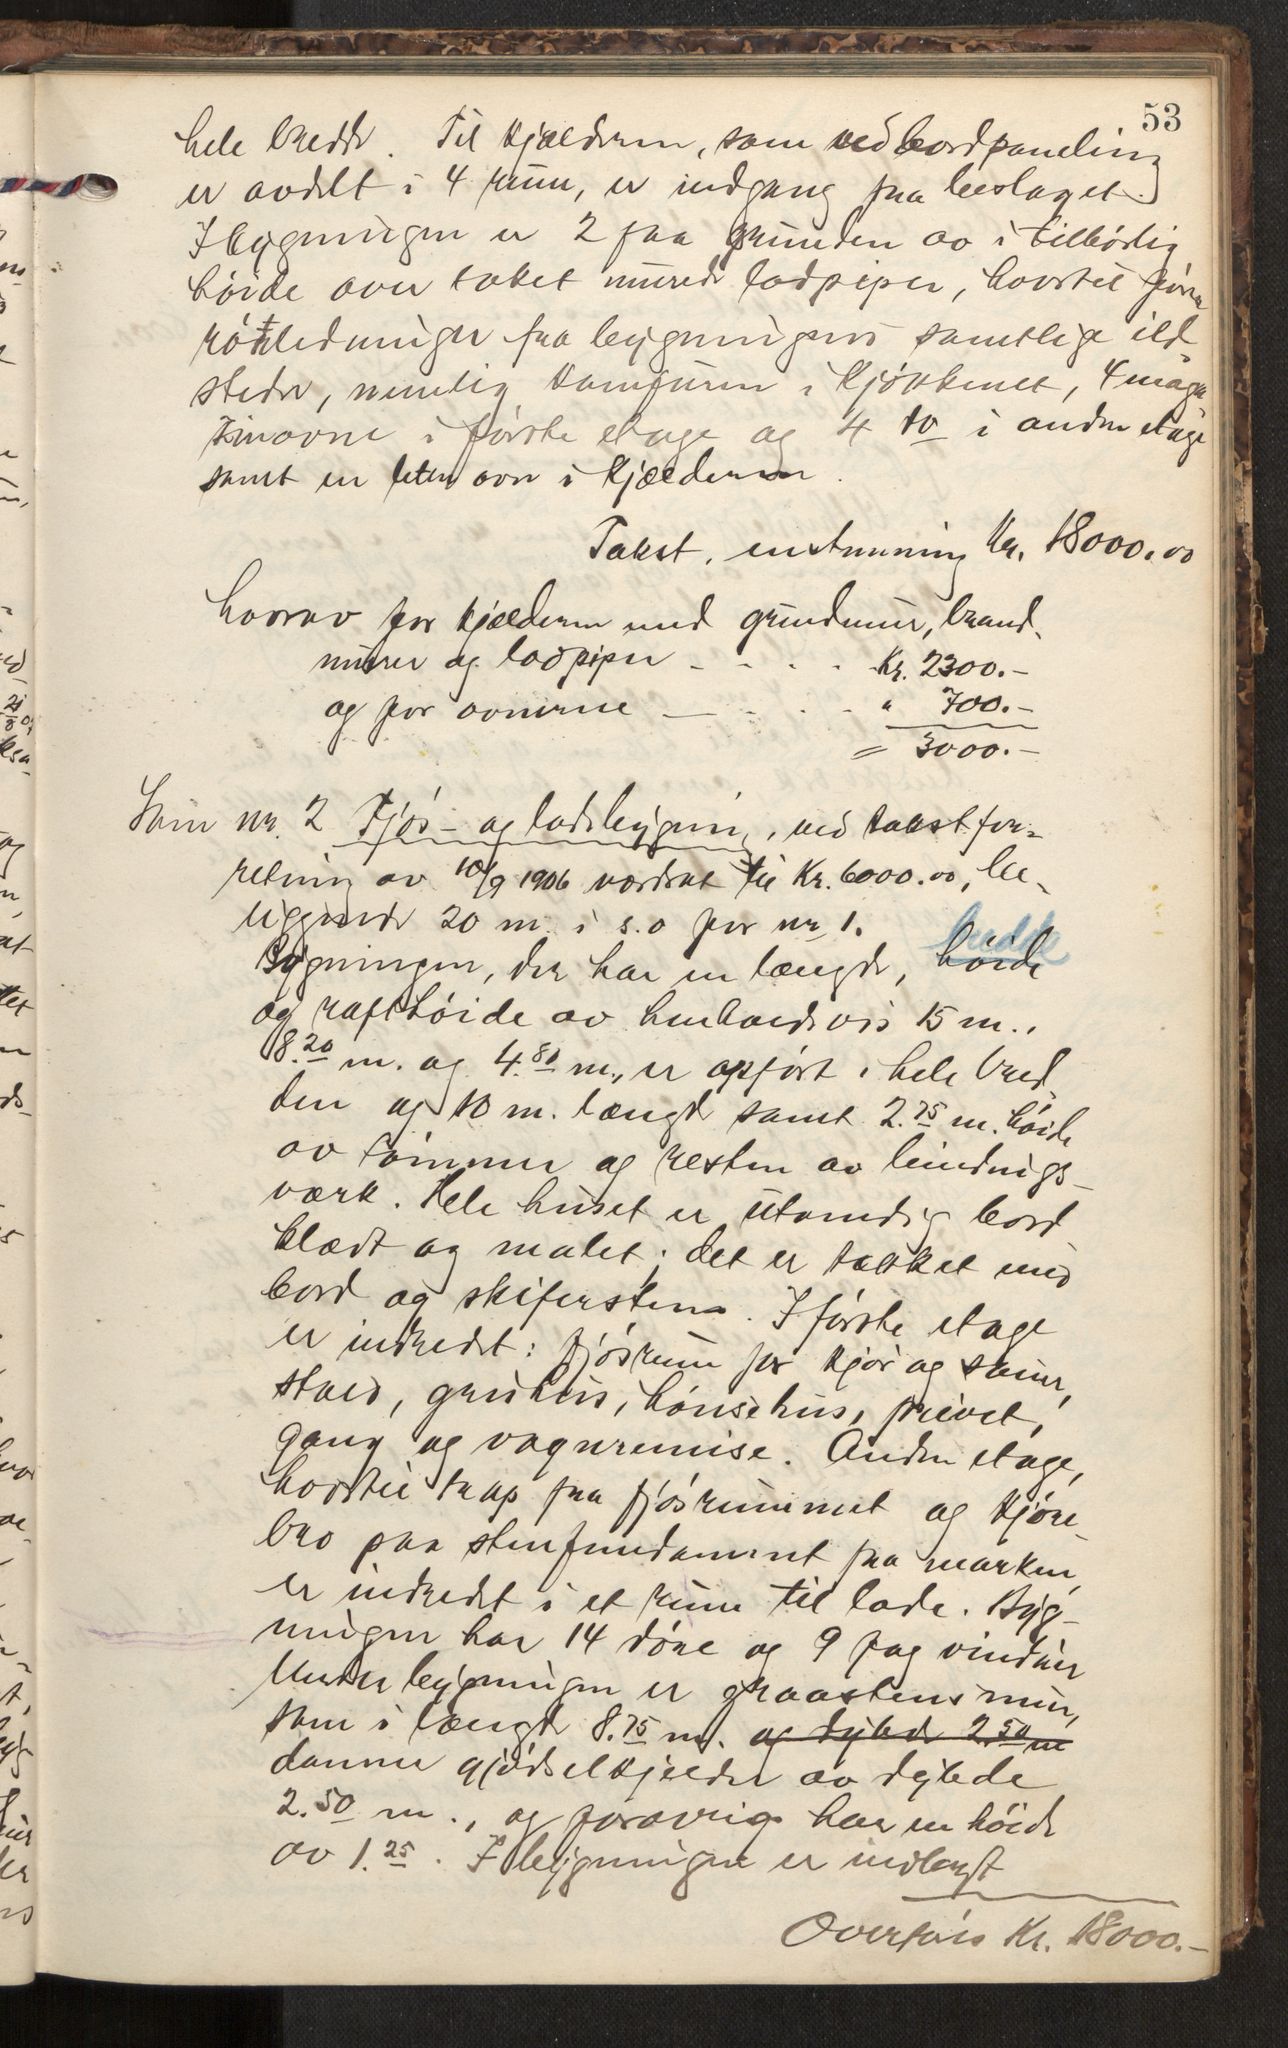 53
hele bredde. Til kjælderen, som ved bordpaneling
er avdelt i 4 rum, er indgang fra bislaget.
I bygningen er 2 fra grunden av i tilbørlig
høide over taket murede ladpiper, hvortil fører
rørledninger fra bygningens samtlige ild-
steder, nemlig komfuren i kjøkkenet, 4 maga-
sinovne i første etage og 4 do i anden etage
samt en liten ovn i kjælderen.
Takst, enstemmig Kr. 18000.00
hvorav for kjælderen med grundmur, brand-
murer og ladpiper - - - - Kr. 2300.-
og for ovnerne - - - - " 700.-
= 3000.-
Som nr. 2 Fjøs- og ladebygning, ved takstfor-
retning av 10/9 1906 værdsat til Kr. 6000.00, be-
liggende 20 m. i s.o for nr 1.
bredde
Bygningen, der har en længde, høide
og rafthøide av henholdsvis 15 m.,
8.20 m. og 4.80 m., er opført i hele bred-
den og 10 m. længde samt 2.75 m. høide
av tømmer og resten av bindings-
værk. Hele huset er utvendig bord-
klædt og malet; det er tækket med
bord og skifersten. I første etage
er indredet: fjøsrum for kjør og sauer,
stald, grishus, hønsehus, privet,
gang og vognremise. Anden etage,
hvortil trap fra fjøsrummet og kjøre-
bro paa stenfundament fra marken,
er indredet i et rum til lade. Byg-
ningen har 14 døre og 9 fag vinduer
Under bygningen er graastensmur,
som i længde 8.75 m. og dybde 2.50 m
danner gjødselkjelder av dybde
2.50 m., og forøvrig har en høide
av 1.25. I bygningen er indlagt
Overføres Kr. 18000.-